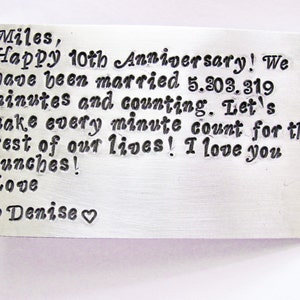 Miles,
Happy 10th Anniversary! We
have been married 5,303,319
minutes and counting. Let's
make every minute count for the
rest of our lives! I love you
bunches!
Love
Denise♡